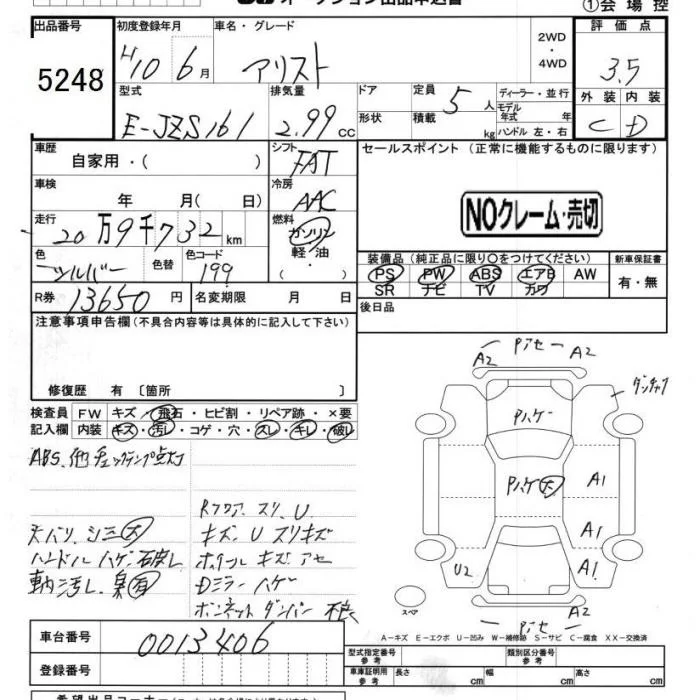 オークション出品申込書
①会場控
出品番号 初度登録年月 車名・グレード 2WD・4WD 評価点
5248 H10 6月 アリスト 3.5
型式 排気量 ドア 定員 5人 ディーラー・並行 外装 内装
E-JZS161 2.99CC 形状 積載 kg モデル年式 年 ハンドル 左・右 C D
車歴 シフト セールスポイント (正常に機能するものに限ります)
自家用・( ) FAT
車検 冷房
年 月( 日) AAC NOクレーム・売切
走行 燃料
20万9千732km ガソリン 軽油 ・( )
色 色替 色コード 装備品 (純正品に限り○をつけてください) 新車保証書
シルバー 199 PS PW ABS エアB AW 有・無
SR ナビ TV カワ
R券 13650円 名変期限 月 日 後日品
注意事項申告欄 (不具合内容等は具体的に記入して下さい)
修復歴 有 〔箇所 〕
検査員 FW キズ・飛石・ヒビ割・リペア跡・×要
記入欄 内装 キズ・汚し・コゲ・穴・スレ・キレ・破し
ABS.他チェックランプ点灯
Rフロア スリ、U
天バリ、シミ大 キズ、Uスリキズ
ハンドルハゲ、ホイールキズ アセ
臭有 Dミラーハゲ
ボンネットダンパー不良
A2 A2
Pハゲ
Pハゲ大 A1
A1
U2 A1
A2
スペア
A－キズ E－エクボ U－凹み W－補修跡 S－サビ C－腐食 XX－交換済
車台番号 0013406 型式指定番号 参考 類別区分番号 参考
登録番号 車庫証明用 参考 長さ cm 幅 cm 高さ cm